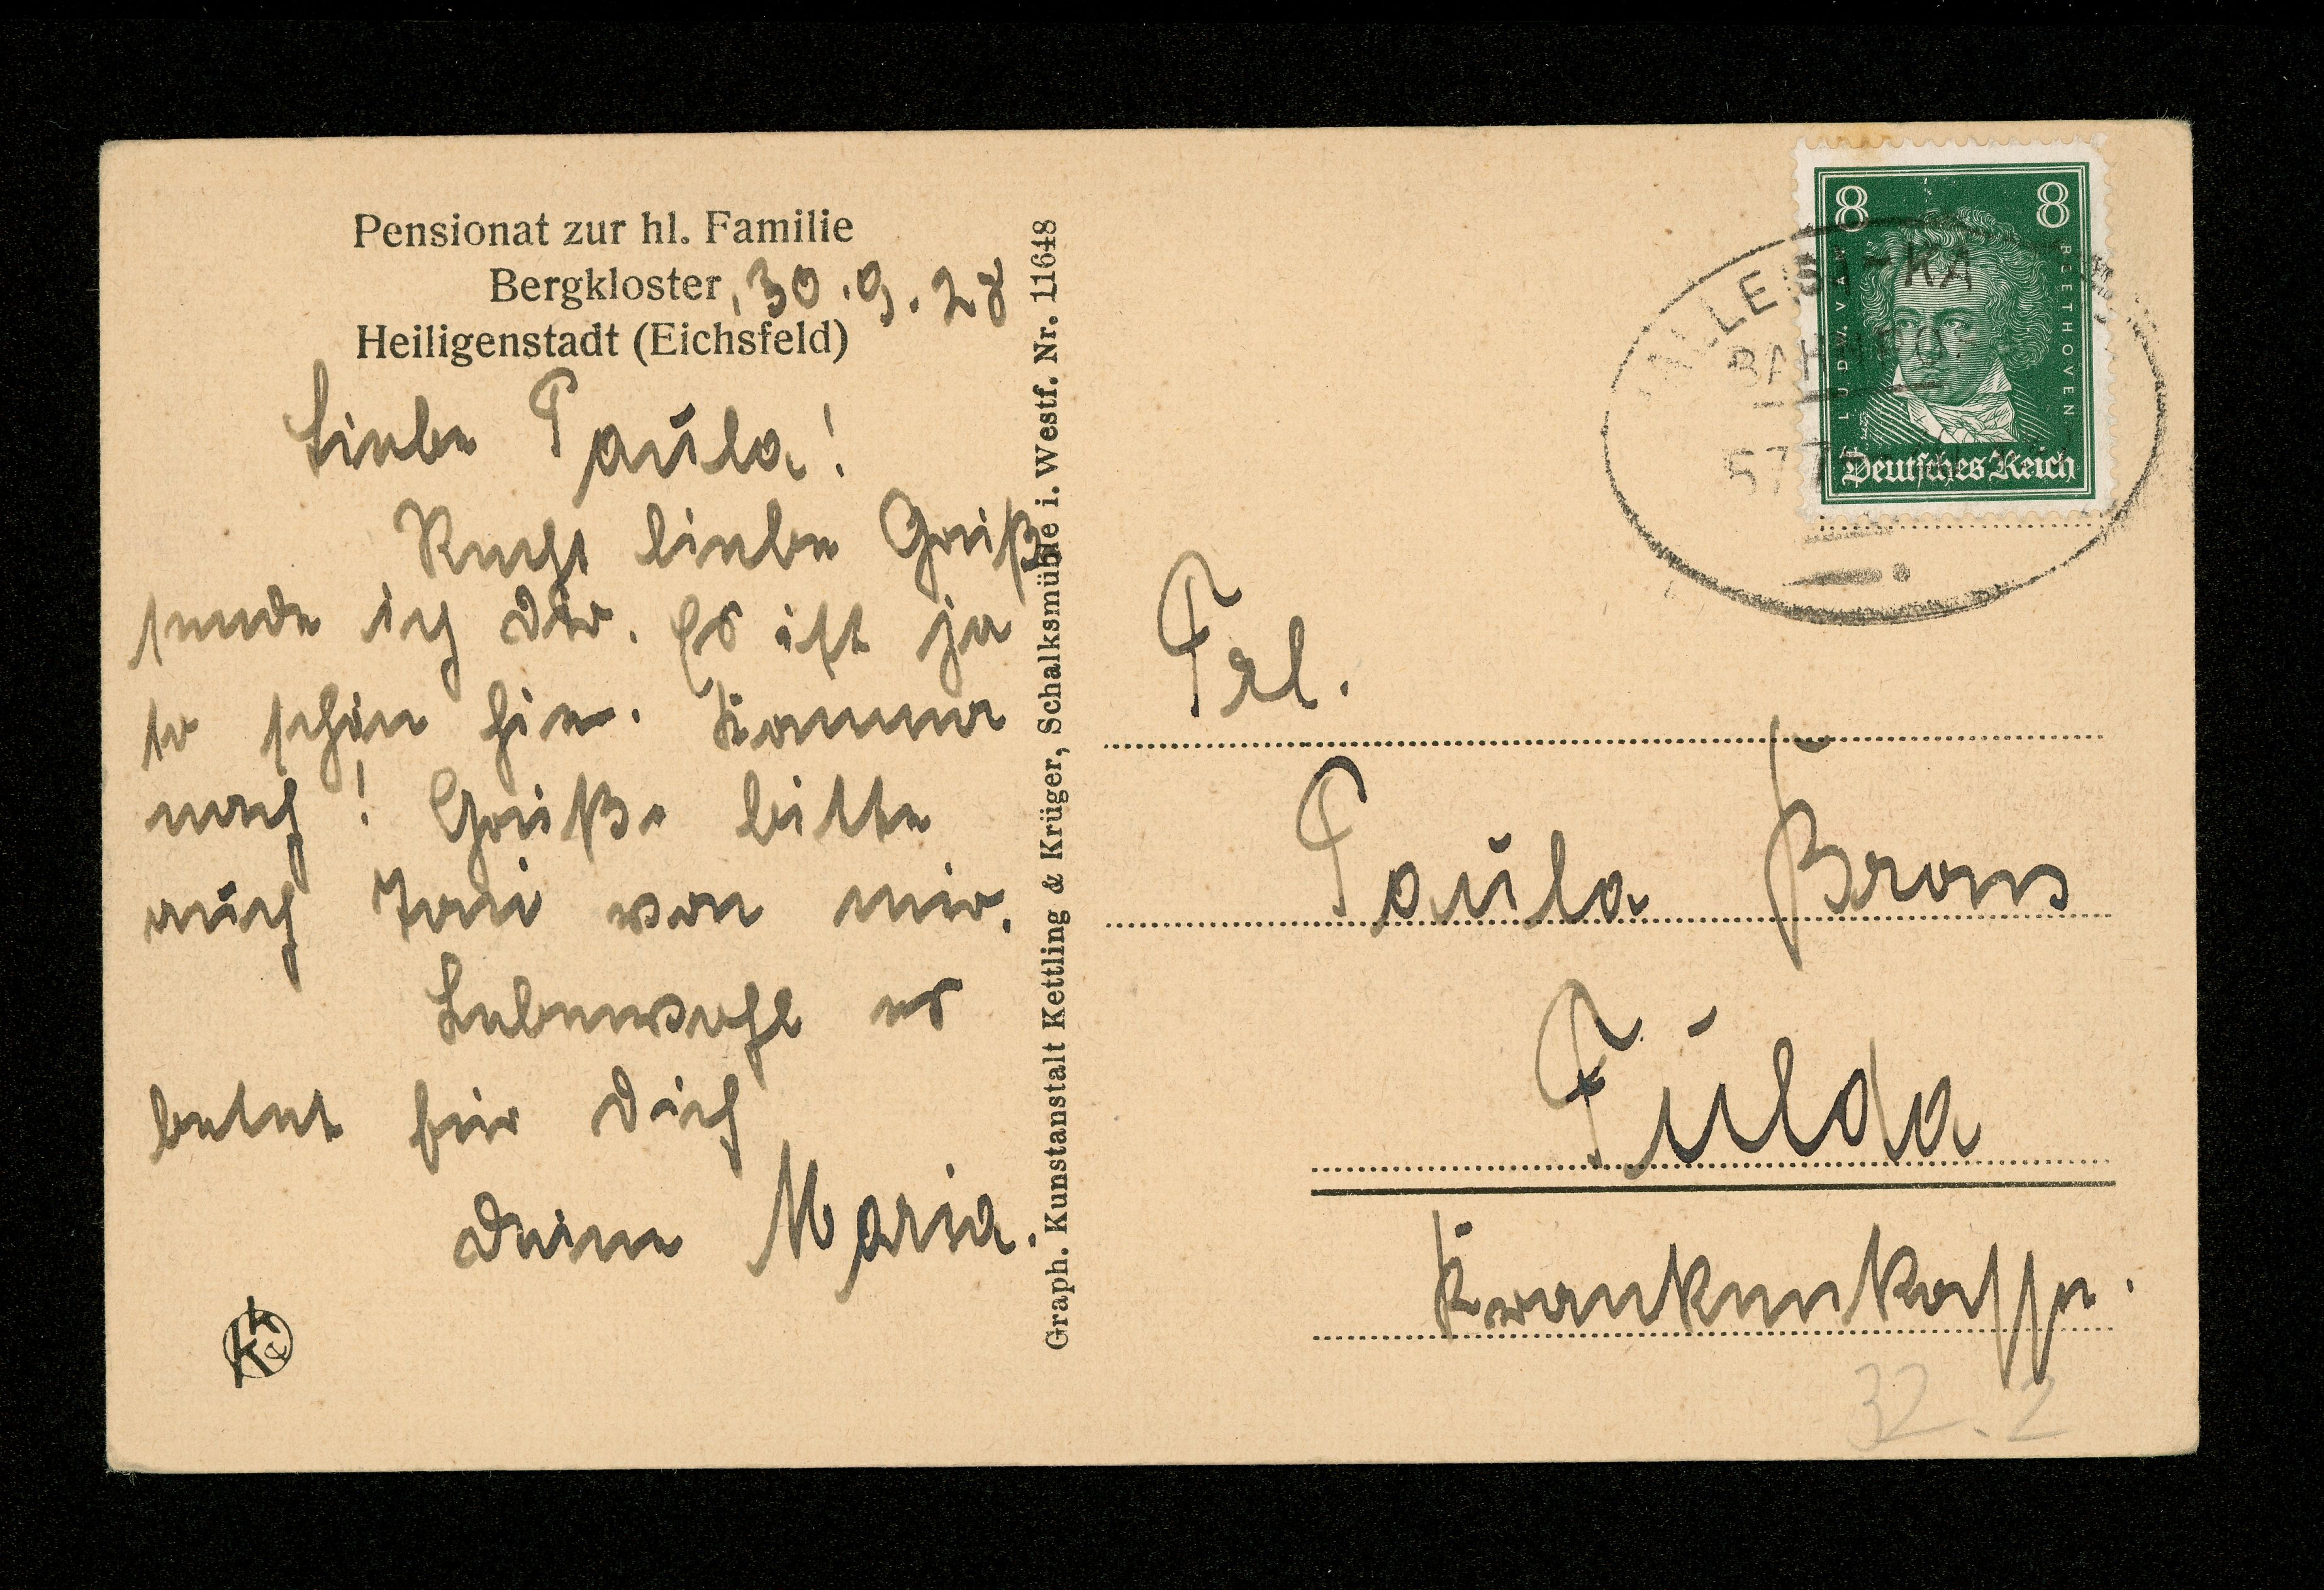 Pensionat zur hl. Familie
Bergkloster, 30.9.28
Heiligenstadt (Eichsfeld)
Liebe Paula!
Recht liebe Grüße
sende ich Dir. Es ist ja
so schön hier. Komme
nach! Grüße bitte
auch Toni von mir.
Lebewohl es
betet für Dich
Deine Maria.
Graph. Kunstanstalt Kettling & Krüger, Schalksmühle i. Westf. Nr. 11648
8 8
LUDW. VAN
BEETHOVEN
Deutsches Reich
BAHNPOST
Frl.
Paula Brons
Fulda
Krankenkasse.
32.2